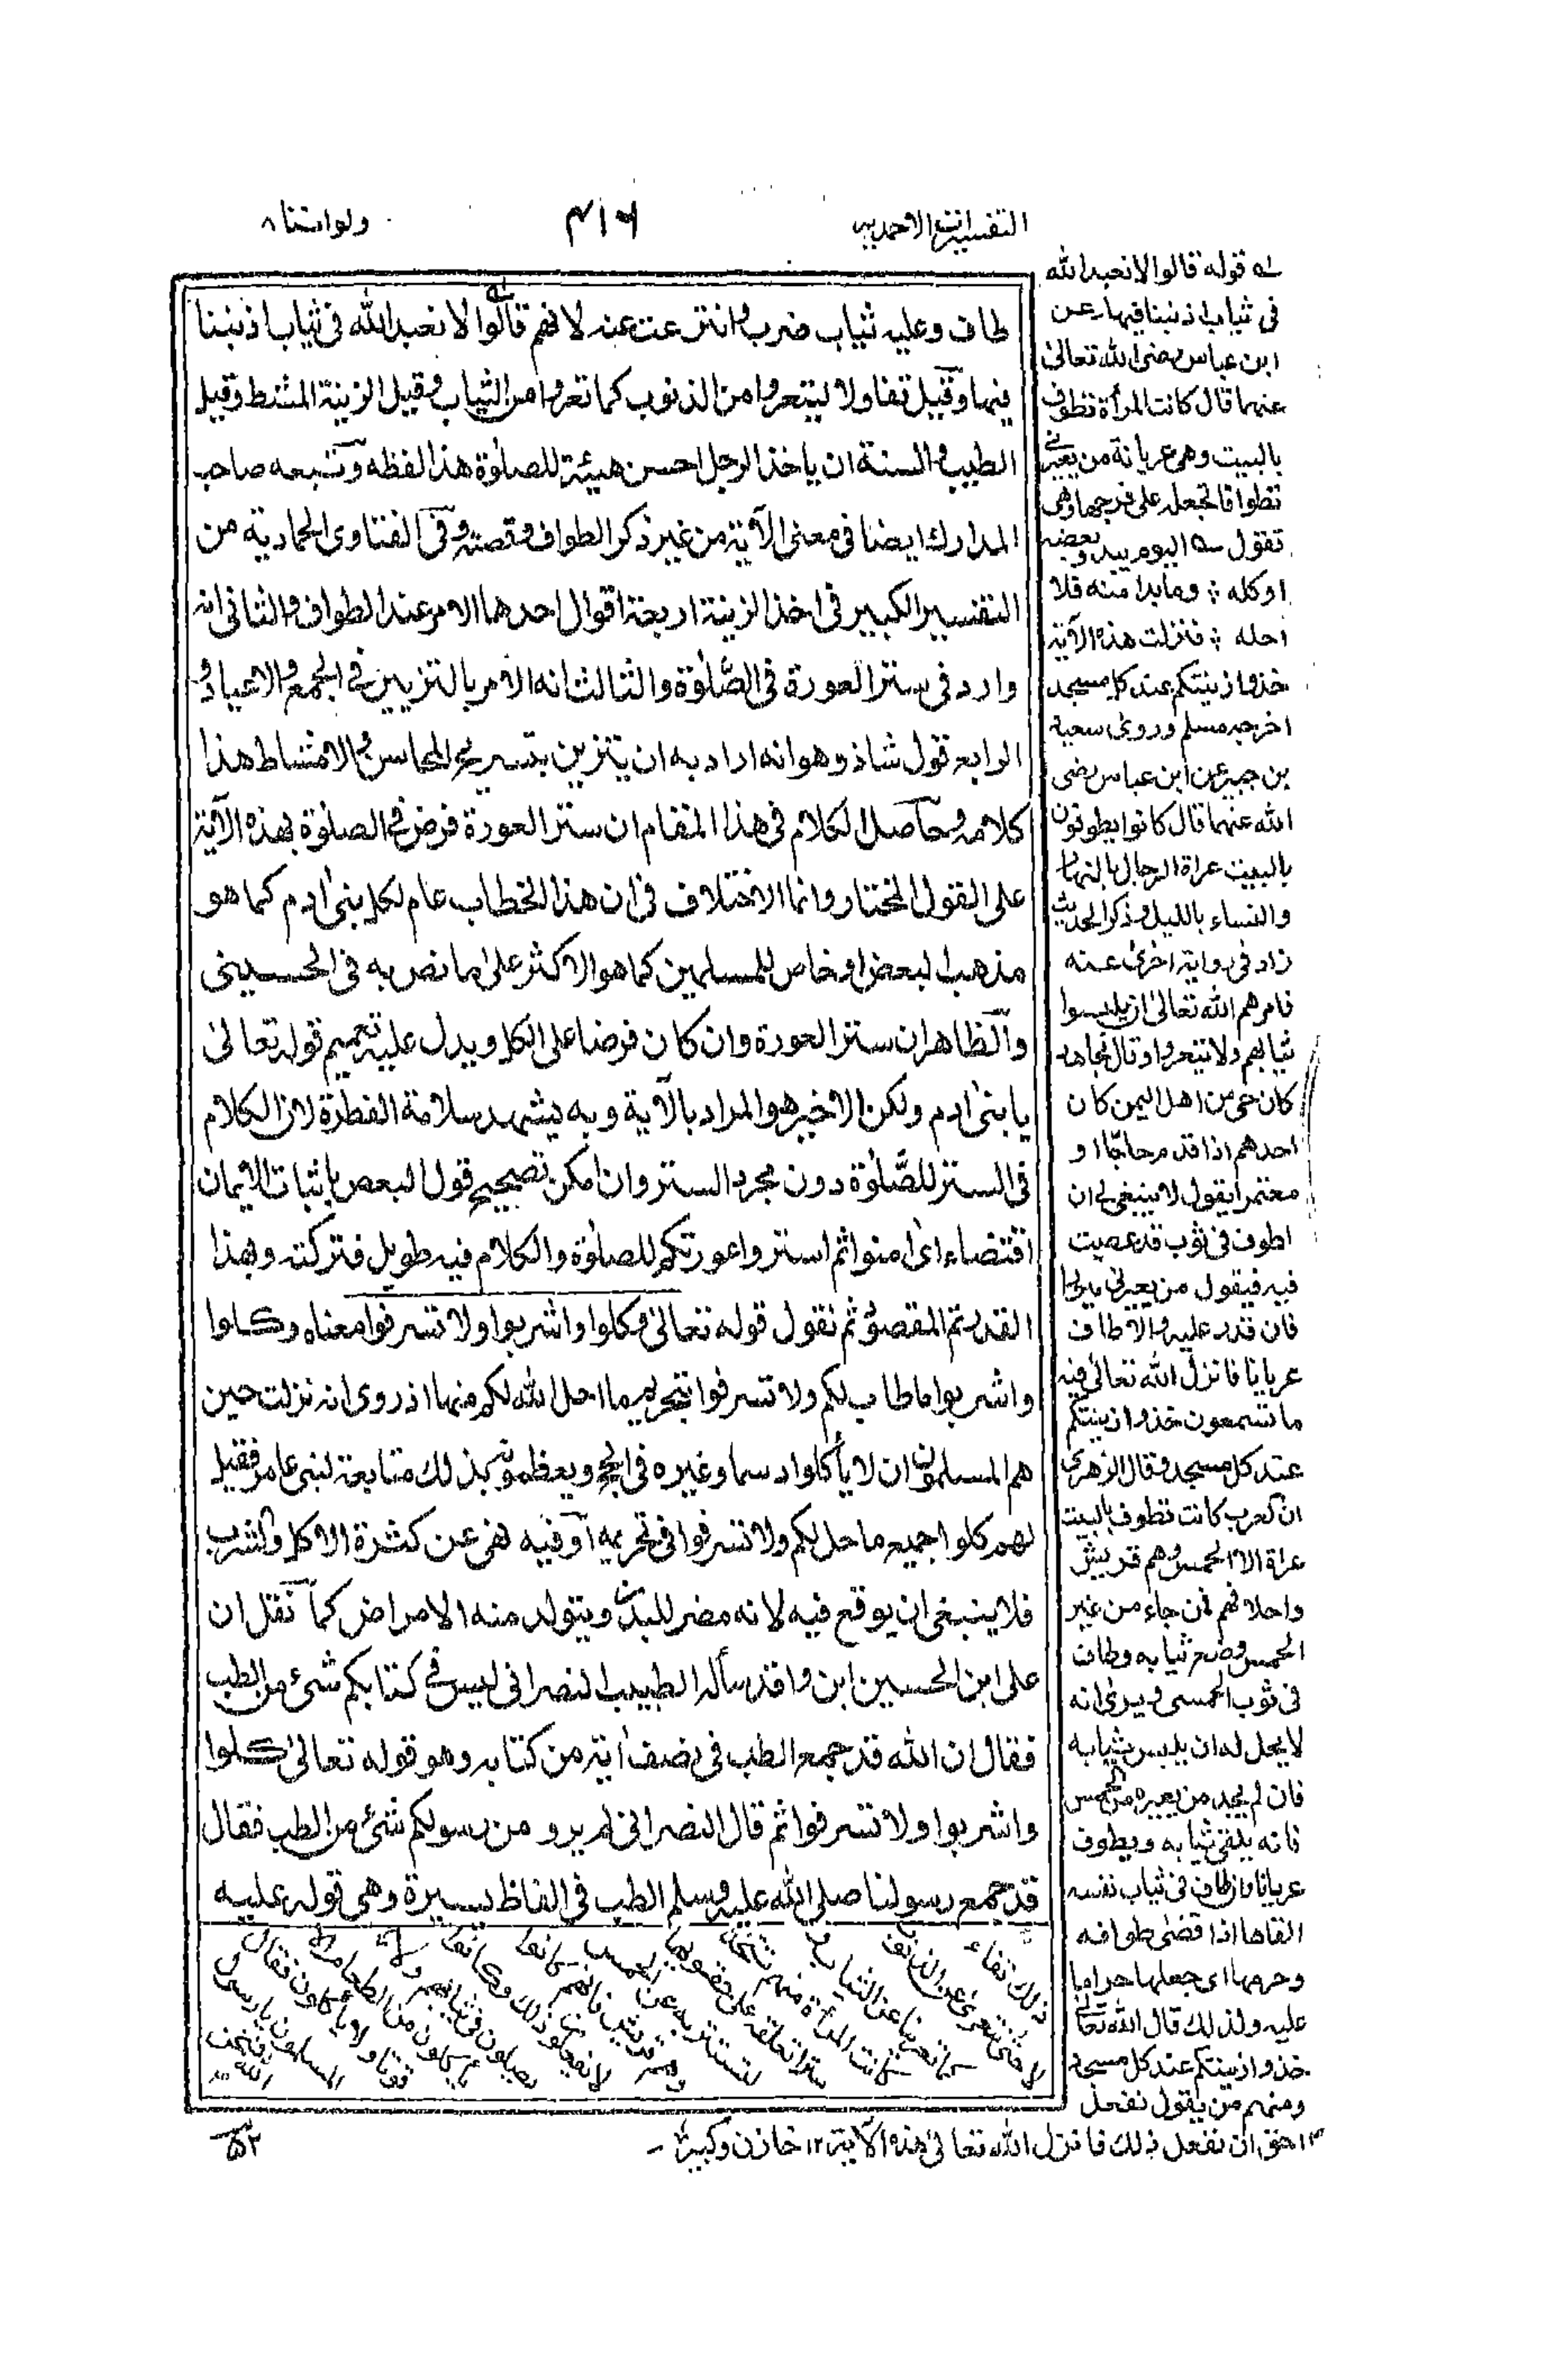 التفسيرات الاحمدية
٤١٦
ولو اننا ٨
طاف وعليه ثياب ضرب وانتزعت عنه لانهم قالوا لا نعبد الله فى ثياب اذنبنا
فيها وقيل تفاولا ليتعروا من الذنوب كما تعروا من الثياب وقيل الزينة المشط وقيل
الطيب والسنة ان ياخذ الرجل احسن هيئة للصلوة هذا لفظه وتبعه صاحب
المدارك ايضا فى معنى الآية من غير ذكر الطواف وقصته وفى الفتاوى الحمادية من
التفسير الكبير فى اخذ الزينة اربعة اقوال احدهما الامر عند الطواف والثانى انه
وارد فى ستر العورة فى الصلوة والثالث انه الامر بالتزيين فى الجمع والاعياد و
الرابع قول شاذ وهو انه اراد به ان يتزين بتسريح المحاسن والامتشاط هذا
كلامه وحاصل الكلام فى هذا المقام ان ستر العورة فرض فى الصلوة بهذه الآية
على القول المختار وانما الاختلاف فى ان هذا الخطاب عام لكل بنى ادم كما هو
مذهب البعض او خاص للمسلمين كما هو الاكثر على ما نص به فى الحسينى
والظاهر ان ستر العورة وان كان فرضا على الكل ويدل عليه تعميم قوله تعالى
يا بنى ادم ولكن الاخير هو المراد بالآية وبه يشهد سلامة الفطرة لان الكلام
فى الستر للصلوة دون مجرد الستر وان امكن تصحيح قول البعض باثبات الايمان
اقتضاء اى امنوا ثم استروا عورتكم للصلوة والكلام فيه طويل فتركته وبهذا
القدر تم المقصود ثم نقول قوله تعالى وكلوا واشربوا ولا تسرفوا معناه وكلوا
واشربوا ما طاب لكم ولا تسرفوا بتحريم ما احل الله لكم منها اذ روى انه نزلت حين
هم المسلمون ان لا يأكلوا دسما وغيره فى الحج ويعظمونه بذلك متابعة لبنى عامر فقيل
لهم كلوا جميع ما حل لكم ولا تسرفوا فى تحريمه او فيه نهى عن كثرة الاكل والشرب
فلا ينبغى ان يوقع فيه لانه مضر للبدن ويتولد منه الامراض كما نقل ان
على ابن الحسين ابن واقد سأله الطبيب النصرانى ليس فى كتابكم شئ من الطب
فقال ان الله قد جمع الطب فى نصف آية من كتابه وهو قوله تعالى كلوا
واشربوا ولا تسرفوا ثم قال النصرانى لم يرو من رسولكم شئ من الطب فقال
قد جمع رسولنا صلى الله عليه وسلم الطب فى الفاظ يسيرة وهى قوله عليه
له قوله قالوا لا نعبد الله
فى ثياب اذنبنا فيها عن
ابن عباس رضى الله تعالى
عنهما قال كانت المرأة تطوف
بالبيت وهى عريانة من يعيرنى
تطوافا تجعله على فرجها وهى
تقول ؎ اليوم يبدو بعضه
او كله ؛ وما بدا منه فلا
احله ؛ فنزلت هذه الآية
خذوا زينتكم عند كل مسجد
اخرجه مسلم وروى سعيد
بن جبير عن ابن عباس رضى
الله عنهما قال كانوا يطوفون
بالبيت عراة الرجال بالنهار
والنساء بالليل وذكر الحديث
زاد فى رواية اخرى عنه
فامرهم الله تعالى ان يلبسوا
ثيابهم ولا يتعروا وقال مجاهد
كان حى من اهل اليمن كان
احدهم اذا قدم حاجا او
معتمرا يقول لا ينبغى لى ان
اطوف فى ثوب قد عصيت
فيه فيقول من يعيرنى ميزرا
فان قدر عليه والا طاف
عريانا فانزل الله تعالى فيه
ما تسمعون خذوا زينتكم
عند كل مسجد وقال الزهرى
ان العرب كانت تطوف بالبيت
عراة الا الحمس وهم قريش
واحلافهم فمن جاء من غير
الحمس وضع ثيابه وطاف
فى ثوب احمسى ويرى انه
لا يحل له ان يلبس ثيابه
فان لم يجد من يعيره من الحمس
فانه يلقى ثيابه ويطوف
عريانا وان طاف فى ثياب نفسه
القاها اذا قضى طوافه
وحرمها اى جعلها حراما
عليه ولذلك قال الله تعالى
خذوا زينتكم عند كل مسجد
ومنهم من يقول نفعل
ذلك تفاء
المسلمون يا رسول
الله فنحن
احق ان نفعل ذلك فانزل الله تعالى هذه الآية ١٢ خازن وكبير